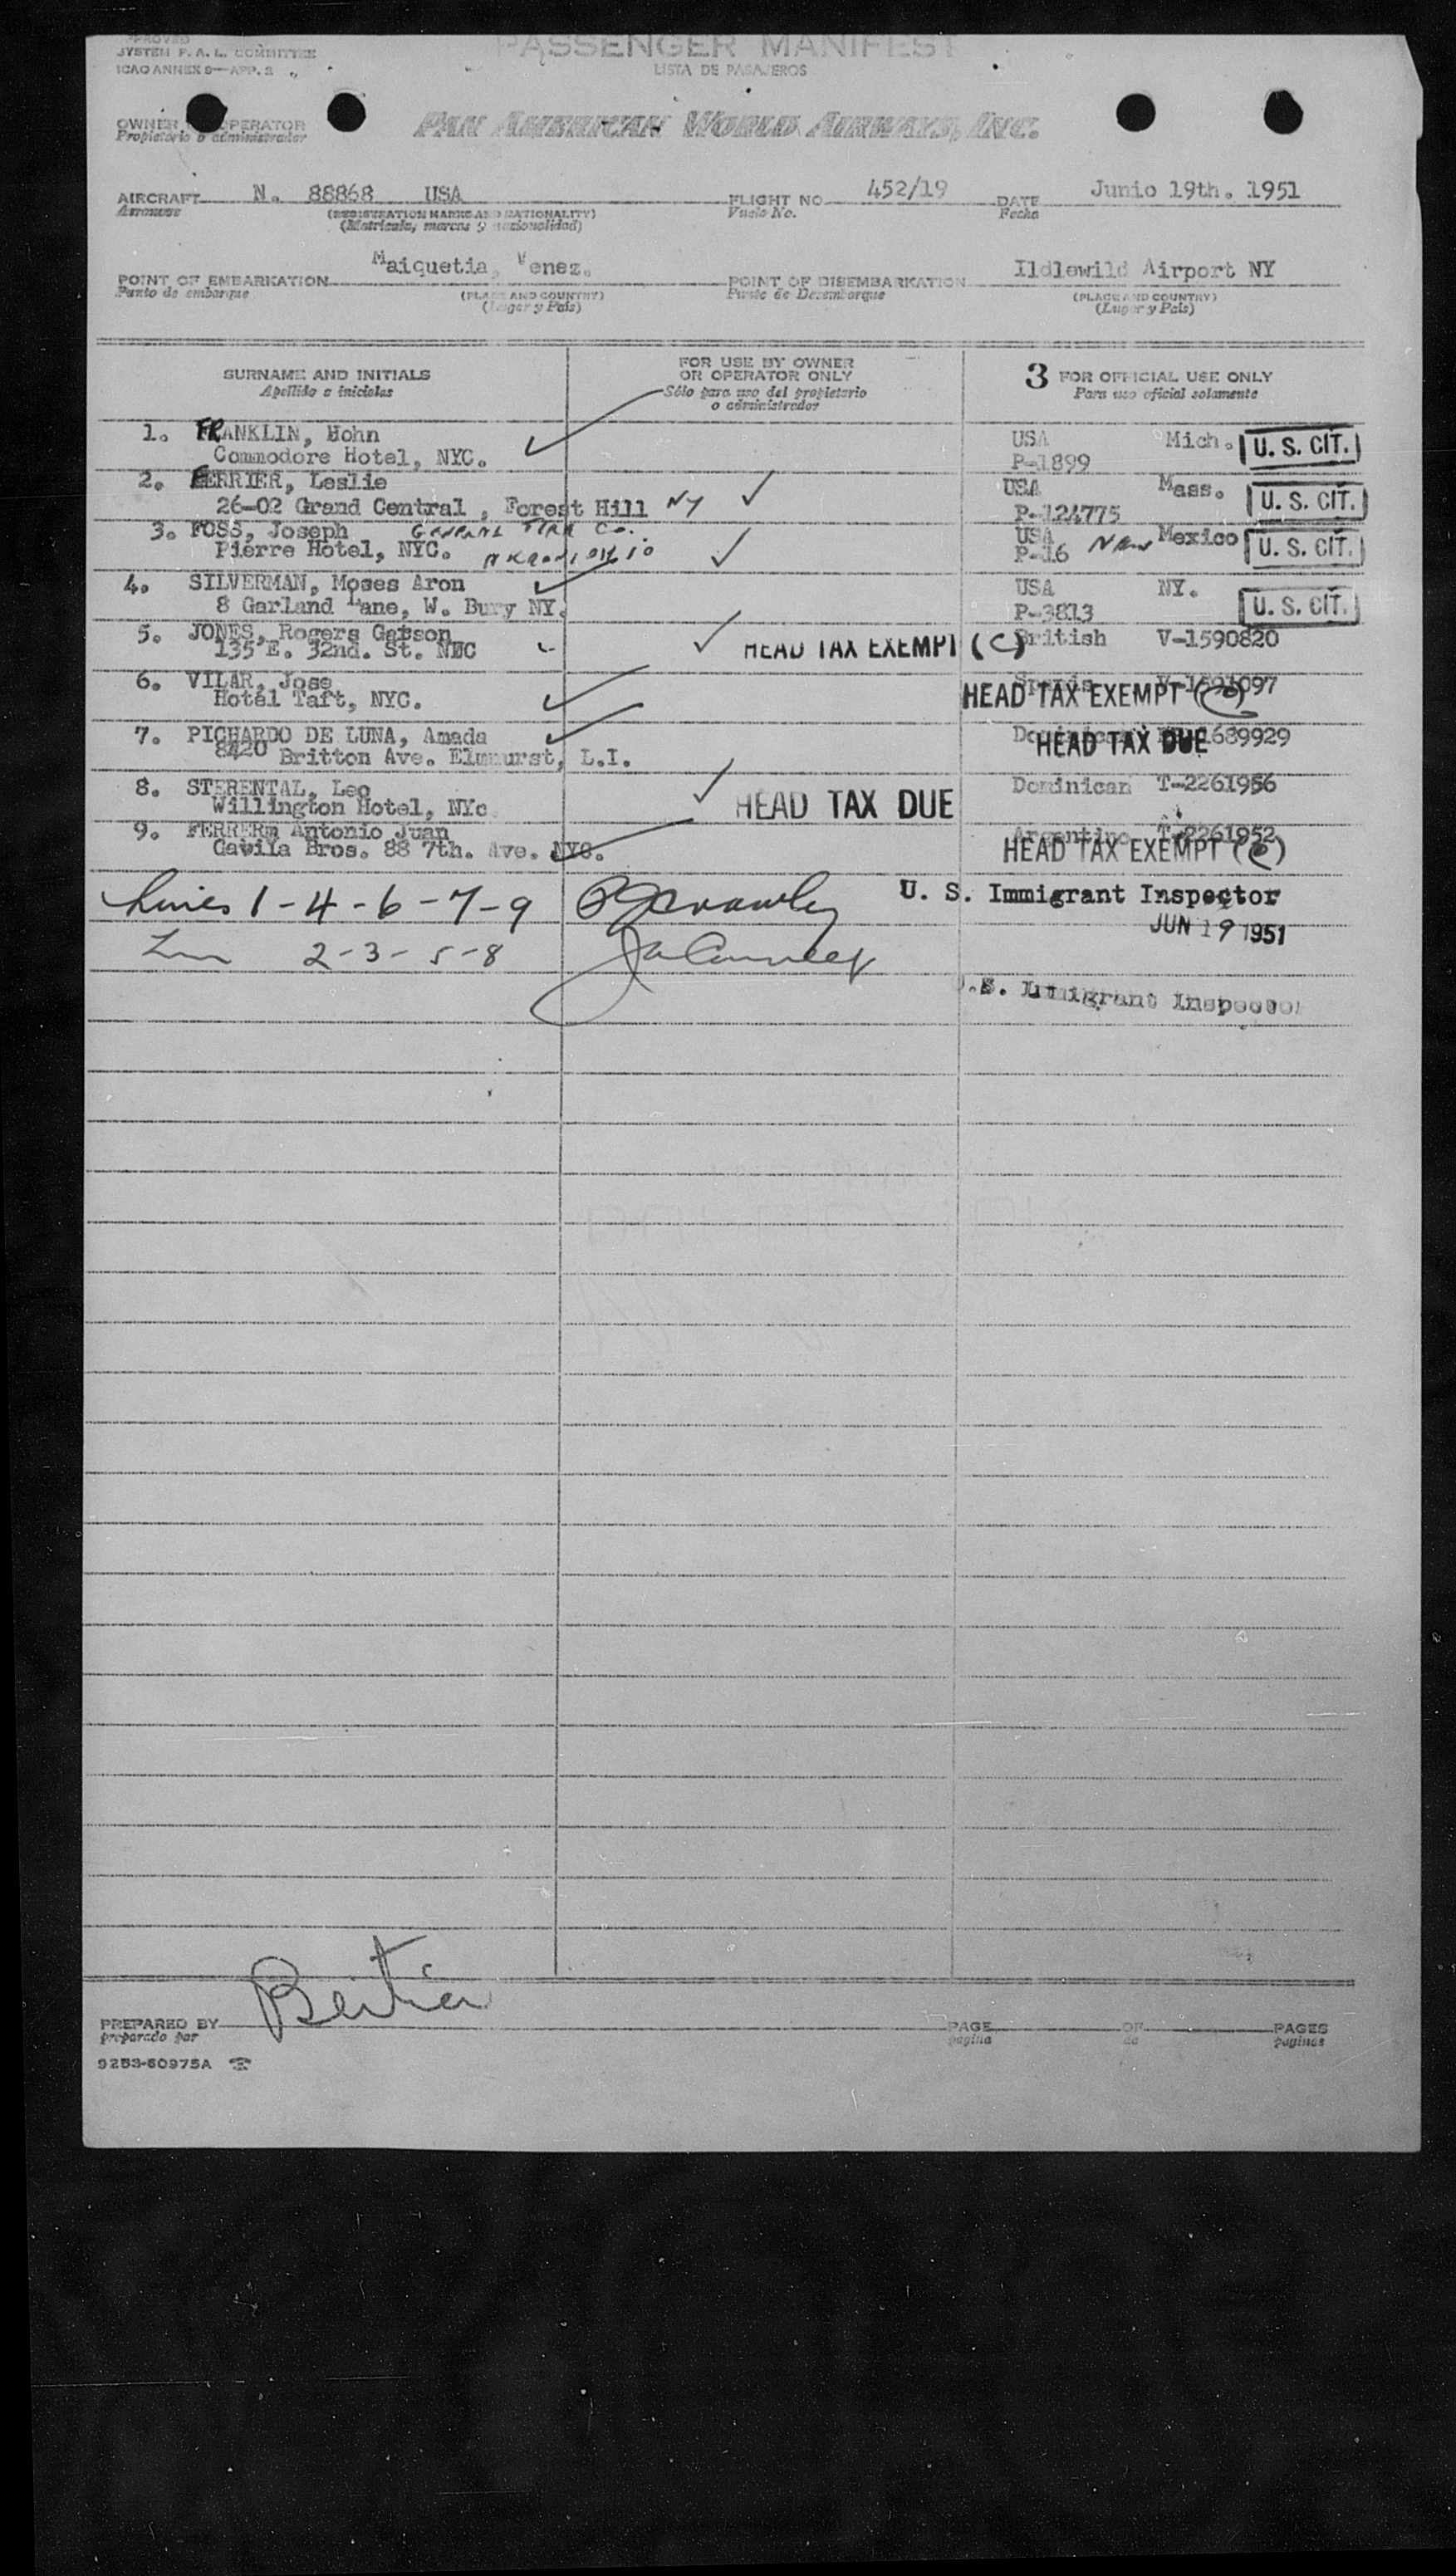 APPROVED
SYSTEM F. A. L. COMMITTEE
ICAO ANNEX 9—APP. 2
PASSENGER MANIFEST
LISTA DE PASAJEROS
OWNER OPERATOR
Propietario o administrador
PAN AMERICAN WORLD AIRWAYS, INC.
AIRCRAFT N. 88868 USA FLIGHT NO. 452/19 DATE Junio 19th. 1951
Aeronave (REGISTRATION MARKS AND NATIONALITY) Vuelo No. Fecha
(Matricula, marcas y nacionalidad)
POINT OF EMBARKATION Maiquetia, Venez. POINT OF DISEMBARKATION Ildlewild Airport NY
Punto de embarque (PLACE AND COUNTRY) Punto de Desembarque (PLACE AND COUNTRY)
(Lugar y Pais) (Lugar y Pais)
SURNAME AND INITIALS FOR USE BY OWNER OR OPERATOR ONLY 3 FOR OFFICIAL USE ONLY
Apellido e iniciales Sólo para uso del propietario o administrador Para uso oficial solamente
1. FRANKLIN, Hohn USA Mich. U. S. CIT.
Commodore Hotel, NYC. P-1899
2. FERRIER, Leslie USA Mass. U. S. CIT.
26-02 Grand Central , Forest Hill NY P-124775
3. FOSS, Joseph GENERAL TIRE CO. USA New Mexico U. S. CIT.
Pierre Hotel, NYC. AKRON OHIO P-16
4. SILVERMAN, Moses Aron USA NY. U. S. CIT.
8 Garland Lane, W. Bury NY. P-3813
5. JONES, Rogers HEAD TAX EXEMPT (C) British V-1590820
135 E. 32nd. St. NYC
6. VILAR, Jose HEAD TAX EXEMPT
Hotel Taft, NYC.
7. PICHARDO DE LUNA, Amada HEAD TAX DUE 1689929
8420 Britton Ave. Elmhurst, L.I.
8. STERENTAL, Leo HEAD TAX DUE Dominican T-2261956
Willington Hotel, NYc.
9. FERRER Antonio Juan Argentino T-2261952
Gavila Bros. 88 7th. Ave. NYC. HEAD TAX EXEMPT
Lines 1-4-6-7-9 U. S. Immigrant Inspector
JUN 19 1951
2-3-5-8
U.S. Immigrant Inspector
PREPARED BY PAGE OF PAGES
preparado por pagina de paginas
9253-60975A